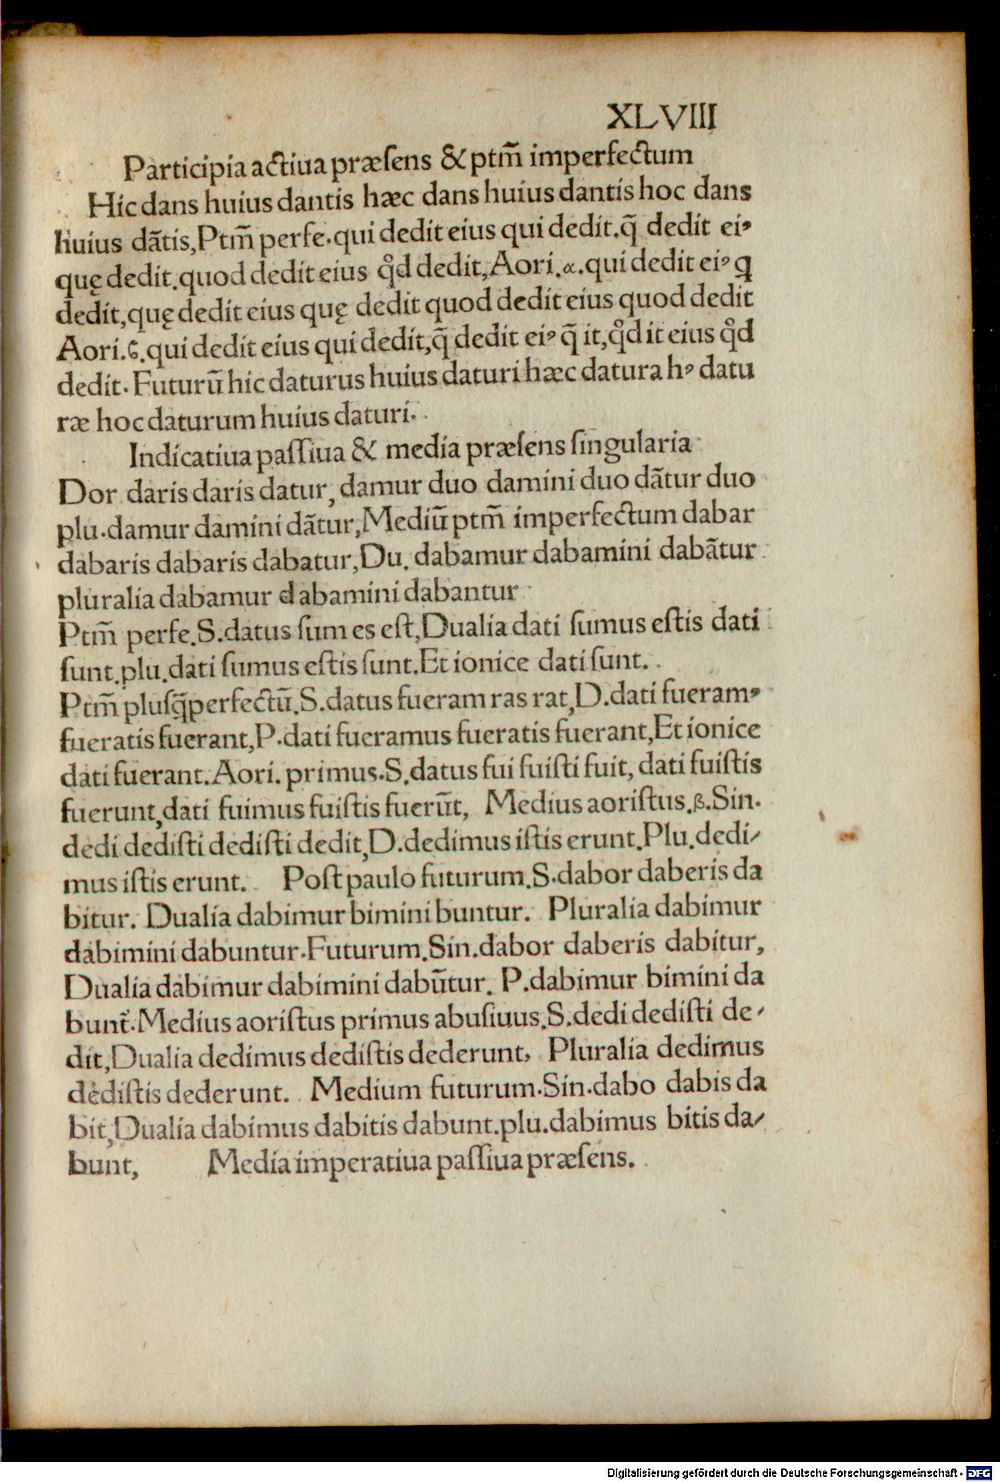 XLVIII
Participia actiua præſens & ptm̄ imperfectum
Hic dans huius dantis hæc dans huius dantis hoc dans
huius dãtis,Ptm̄ perfe.qui dedit eius qui dedit.q̄ dedit eiꝰ
quę dedit.quod dedit eius qͦd dedit,Aori.α.qui dedit eiꝰ q
dedit,quę dedit eius quę dedit quod dedit eius quod dedit
Aori.ϛ.qui dedit eius qui dedit,q̄ dedit eiꝰ q̄ it,qͦd it eius qͦd
dedit. Futurū hic daturus huius daturi hæc datura hꝰ datu
ræ hoc daturum huius daturi.
Indicatiua paſſiua & media præſens ſingularia
Dor daris daris datur, damur duo damini duo dãtur duo
plu.damur damini dãtur,Mediū ptm̄ imperfectum dabar
dabaris dabaris dabatur,Du. dabamur dabamini dabãtur
pluralia dabamur dabamini dabantur
Ptm̄ perfe.S.datus ſum es eſt,Dualia dati ſumus eſtis dati
ſunt.plu.dati ſumus eſtis ſunt.Et ionice dati ſunt.
Ptm̄ pluſq̄perfectū.S.datus fueram ras rat,D.dati fueramꝰ
fueratis fuerant,P.dati fueramus fueratis fuerant,Et ionice
dati fuerant.Aori. primus.S.datus fui fuiſti fuit, dati fuiſtis
fuerunt,dati fuimus fuiſtis fuerūt, Medius aoriſtus.β.Sin.
dedi dediſti dediſti dedit,D.dedimus iſtis erunt.Plu.dedi⸗
mus iſtis erunt. Poſt paulo futurum.S.dabor daberis da
bitur. Dualia dabimur bimini buntur. Pluralia dabimur
dabimini dabuntur.Futurum.Sin.dabor daberis dabitur,
Dualia dabimur dabimini dabūtur. P.dabimur bimini da
bunt̄.Medius aoriſtus primus abuſiuus.S.dedi dediſti de⸗
dit,Dualia dedimus dediſtis dederunt, Pluralia dedimus
dediſtis dederunt. Medium futurum.Sin.dabo dabis da
bit,Dualia dabimus dabitis dabunt.plu.dabimus bitis da⸗
bunt, Media imperatiua paſſiua præſens.
Digitalisierung gefördert durch die Deutsche Forschungsgemeinschaft - DFG